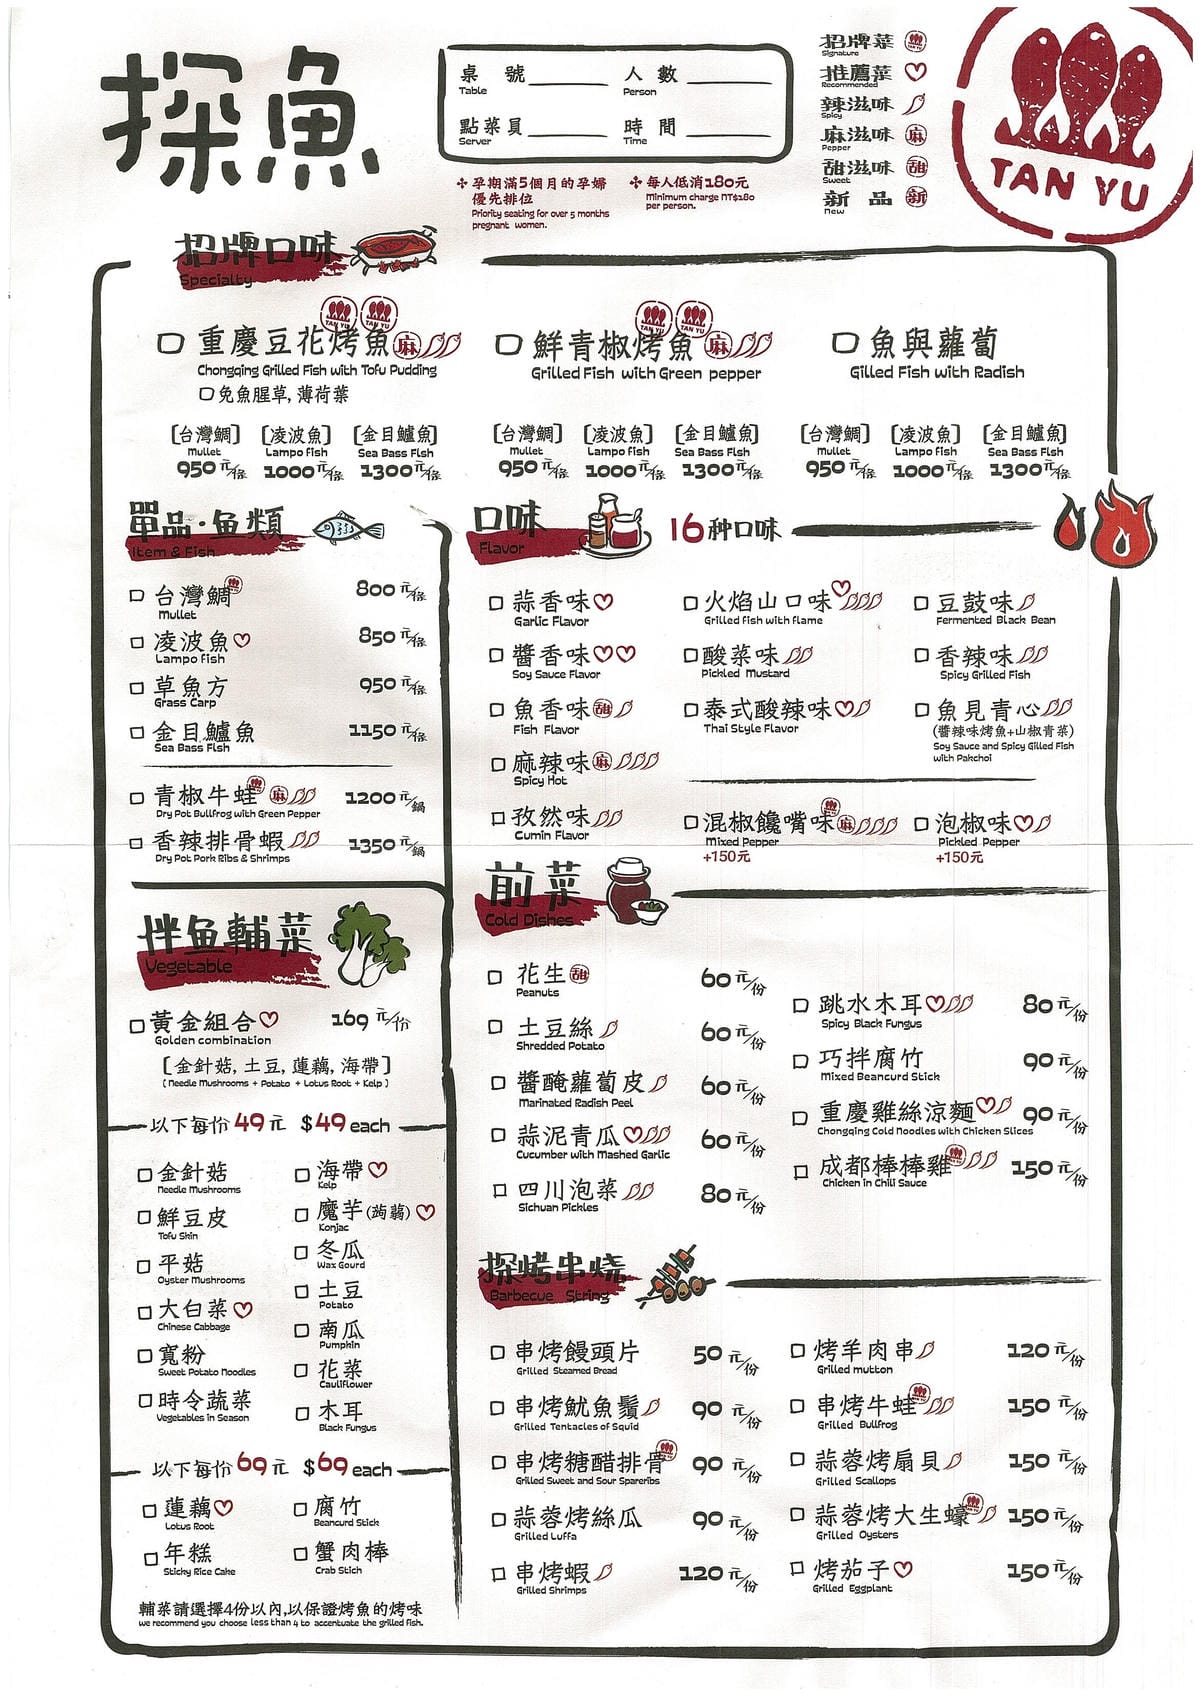 探魚
桌號 人數
Table Person
點菜員 時間
Server Time
孕期滿5個月的孕婦
優先排位
Priority seating for over 5 months
pregnant women.
每人低消180元
Minimum charge NT$180
per person.
招牌菜
Signature
推薦菜
Recommended
辣滋味
Spicy
麻滋味 麻
Pepper
甜滋味 甜
Sweet
新品 新
New
TAN YU
招牌口味
Specialty
重慶豆花烤魚 麻
Chongqing Grilled Fish with Tofu Pudding
免魚腥草,薄荷葉
[台灣鯛] [凌波魚] [金目鱸魚]
Mullet Lampo fish Sea Bass Fish
950元/條 1000元/條 1300元/條
鮮青椒烤魚 麻
Grilled Fish with Green pepper
[台灣鯛] [凌波魚] [金目鱸魚]
Mullet Lampo fish Sea Bass Fish
950元/條 1000元/條 1300元/條
魚與蘿蔔
Gilled Fish with Radish
[台灣鯛] [凌波魚] [金目鱸魚]
Mullet Lampo fish Sea Bass Fish
950元/條 1000元/條 1300元/條
單品·魚類
Item & Fish
台灣鯛 800元/條
Mullet
凌波魚 850元/條
Lampo fish
草魚方 950元/條
Grass Carp
金目鱸魚 1150元/條
Sea Bass Fish
青椒牛蛙 麻 1200元/鍋
Dry Pot Bullfrog with Green Pepper
香辣排骨蝦 1350元/鍋
Dry Pot Pork Ribs & Shrimps
口味 16种口味
Flavor
蒜香味
Garlic Flavor
醬香味
Soy Sauce Flavor
魚香味 甜
Fish Flavor
麻辣味 麻
Spicy Hot
孜然味
Cumin Flavor
火焰山口味
Grilled fish with flame
酸菜味
Pickled Mustard
泰式酸辣味
Thai Style Flavor
豆鼓味
Fermented Black Bean
香辣味
Spicy Grilled Fish
魚見青心
(醬辣味烤魚+山椒青菜)
Soy Sauce and Spicy Gilled Fish
with Pakchoi
混椒饞嘴味 麻
Mixed Pepper
+150元
泡椒味
Pickled Pepper
+150元
拌魚輔菜
Vegetable
黃金組合 169元/份
Golden combination
[金針菇,土豆,蓮藕,海帶]
( Needle Mushrooms + Potato + Lotus Root + Kelp )
以下每份49元 $49each
金針菇
Needle Mushrooms
鮮豆皮
Tofu Skin
平菇
Oyster Mushrooms
大白菜
Chinese Cabbage
寬粉
Sweet Potato Noodles
時令蔬菜
Vegetables in Season
海帶
Kelp
魔芋(蒟蒻)
Konjac
冬瓜
Wax Gourd
土豆
Potato
南瓜
Pumpkin
花菜
Cauliflower
木耳
Black Fungus
以下每份69元 $69each
蓮藕
Lotus Root
年糕
Sticky Rice Cake
腐竹
Beancurd Stick
蟹肉棒
Crab Stich
輔菜請選擇4份以內,以保證烤魚的烤味
we recommend you choose less than 4 to accentuate the grilled fish.
前菜
Cold Dishes
花生 甜 60元/份
Peanuts
土豆絲 60元/份
Shredded Potato
醬醃蘿蔔皮 60元/份
Marinated Radish Peel
蒜泥青瓜 60元/份
Cucumber with Mashed Garlic
四川泡菜 80元/份
Sichuan Pickles
跳水木耳 80元/份
Spicy Black Fungus
巧拌腐竹 90元/份
Mixed Beancurd Stick
重慶雞絲涼麵 90元/份
Chongqing Cold Noodles with Chicken Slices
成都棒棒雞 150元/份
Chicken in Chili Sauce
探烤串燒
Barbecue String
串烤饅頭片 50元/份
Grilled Steamed Bread
串烤魷魚鬚 90元/份
Grilled Tentacles of Squid
串烤糖醋排骨 90元/份
Grilled Sweet and Sour Spareribs
蒜蓉烤絲瓜 90元/份
Grilled Luffa
串烤蝦 120元/份
Grilled Shrimps
烤羊肉串 120元/份
Grilled mutton
串烤牛蛙 150元/份
Grilled Bullfrog
蒜蓉烤扇貝 150元/份
Grilled Scallops
蒜蓉烤大生蠔 150元/份
Grilled Oysters
烤茄子 150元/份
Grilled Eggplant